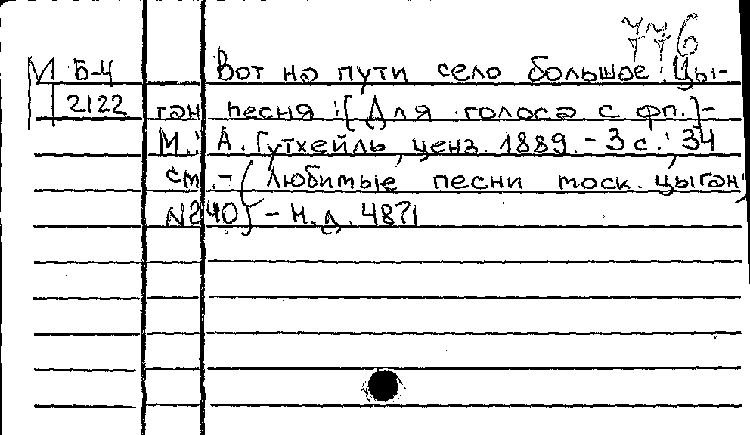 776
М Б-4 Вот на пути село большое. Цы-
2122 ган песня: [Для голоса с фп.]-
М.: А. Гутхейль, ценз. 1889. - 3 с.; 34
см. - (Любимые песни моск. цыган;
№240) - Н.д. 4871